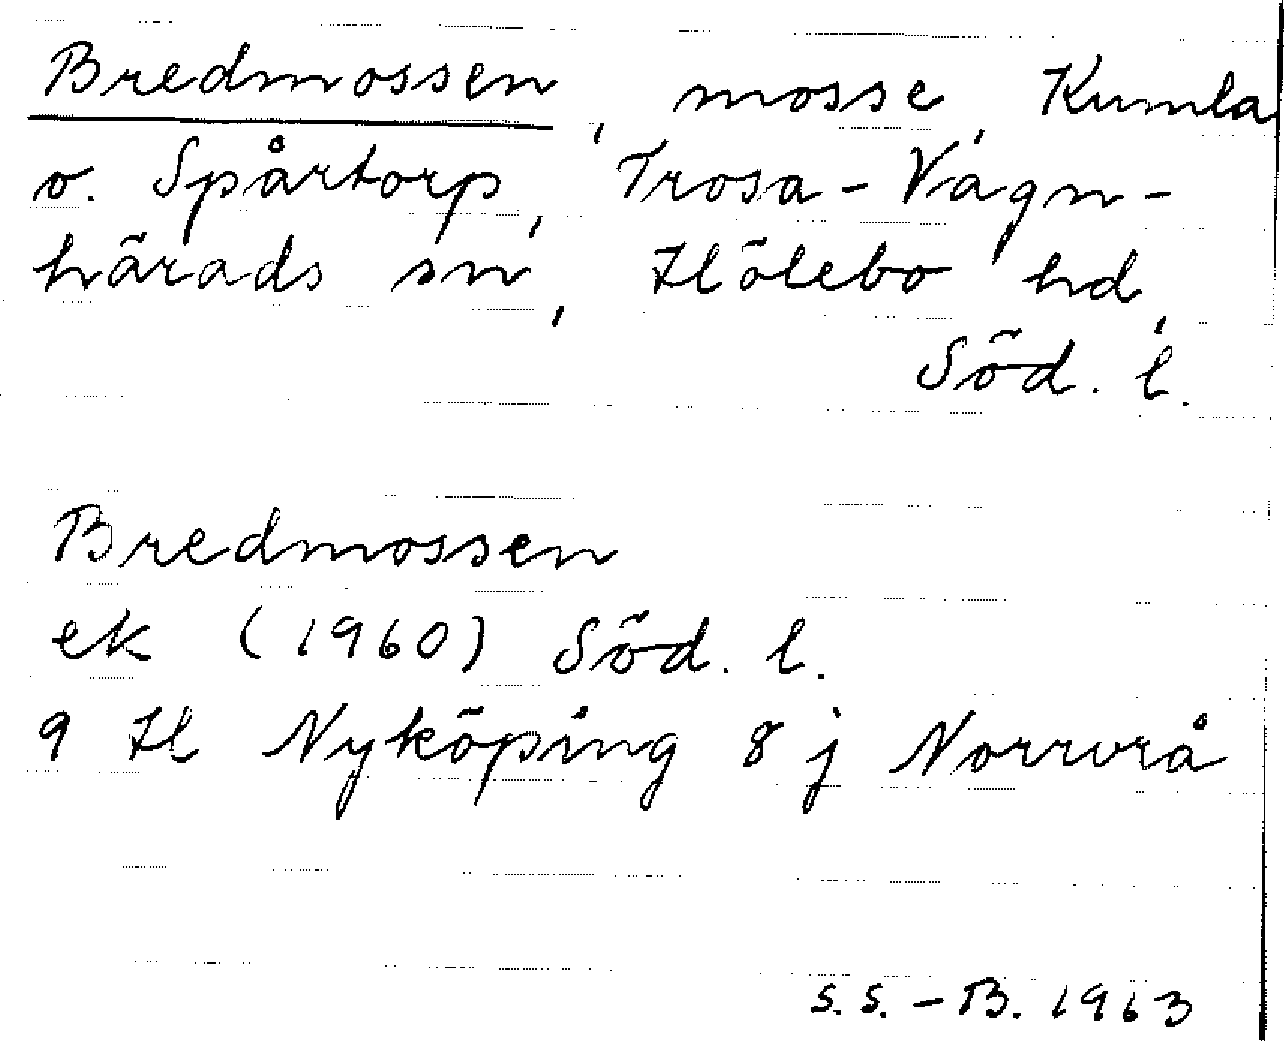 Bredmossen, mosse, Kumla
o. Spårtorp, Trosa-Vagn-
härads sn, Hölebo hd,
Söd. l.
Bredmossen
ek (1960) Söd. l.
9 H Nyköping 8 j Norrvrå
S.S.-B. 1963